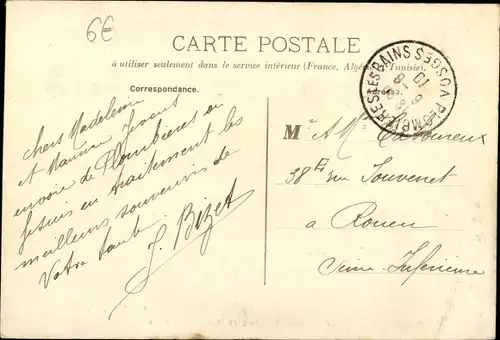 6€
CARTE POSTALE
à utiliser seulement dans le service intérieur (France, Algérie, Tunisie).
Correspondance.
Adresse.
PLOMBIERES-LES-BAINS VOSGES
chers Madeleine
et Maurice
envoie de Plombières ou
je suis en traitement les
meilleurs souvenirs de
Votre tante
J. Bizet
M A M
38E rue Souvenet
a Rouen
Seine Inférieure